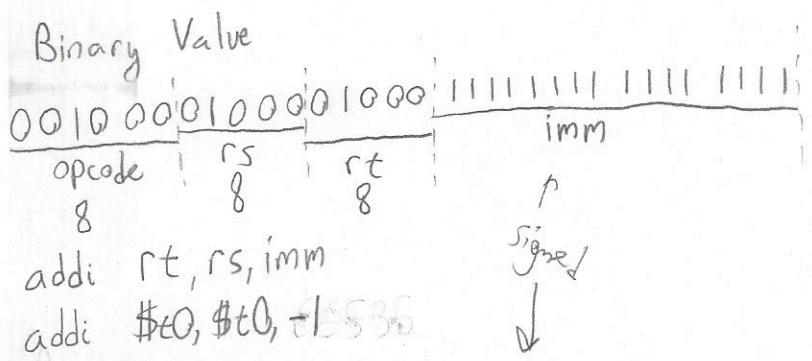 Binary Value
001000 01000 01000 11111111 1111 1111
opcode rs rt imm
8 8 8
signed
addi rt, rs, imm
addi $t0, $t0, -1